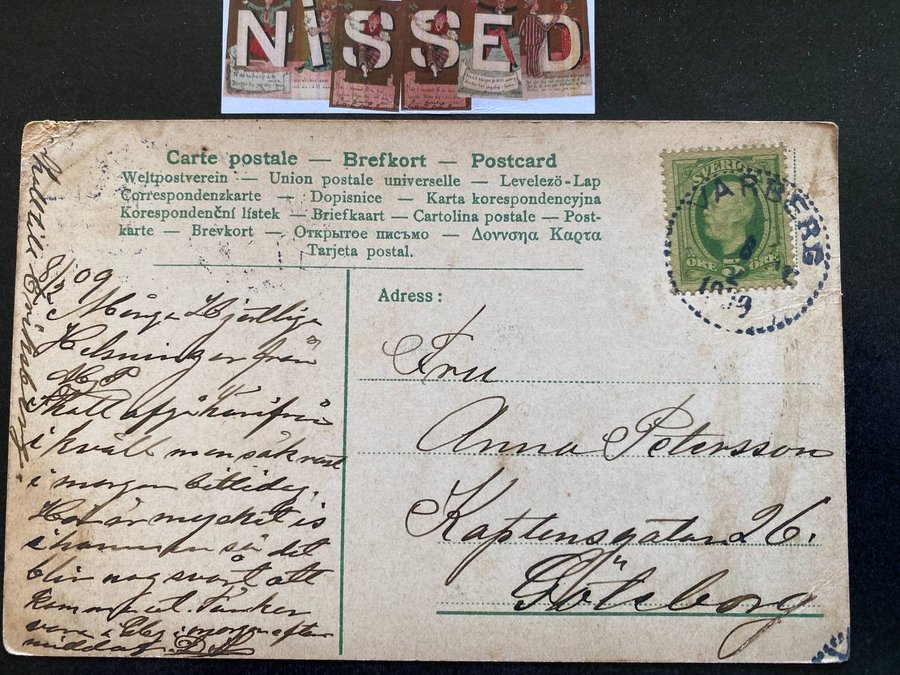 NISSED
Carte postale — Brefkort — Postcard
Weltpostverein — Union postale universelle — Levelezö-Lap
Correspondenzkarte — Dopisnice — Karta korespondencyjna
Korespondenční lístek — Briefkaart — Cartolina postale — Post-
karte — Brevkort — Открытое письмо — Δοννσηα Καρτα
Tarjeta postal.
SVERIGE
5
ÖRE ÖRE
VARBERG
8
2
1909
Adress:
Fru
Anna Petersson
Kaptensgatan 26.
Göteborg
8/2 09
Många Hjärtliga
Helsningar från
Skall afgå härifrån
i kväll men säkrast
i morgon bittidig.
Här är mycket is
i hamnen så det
blir nog svårt att
komma ut. Tänker
vara i Gbg i morgon efter
middag.